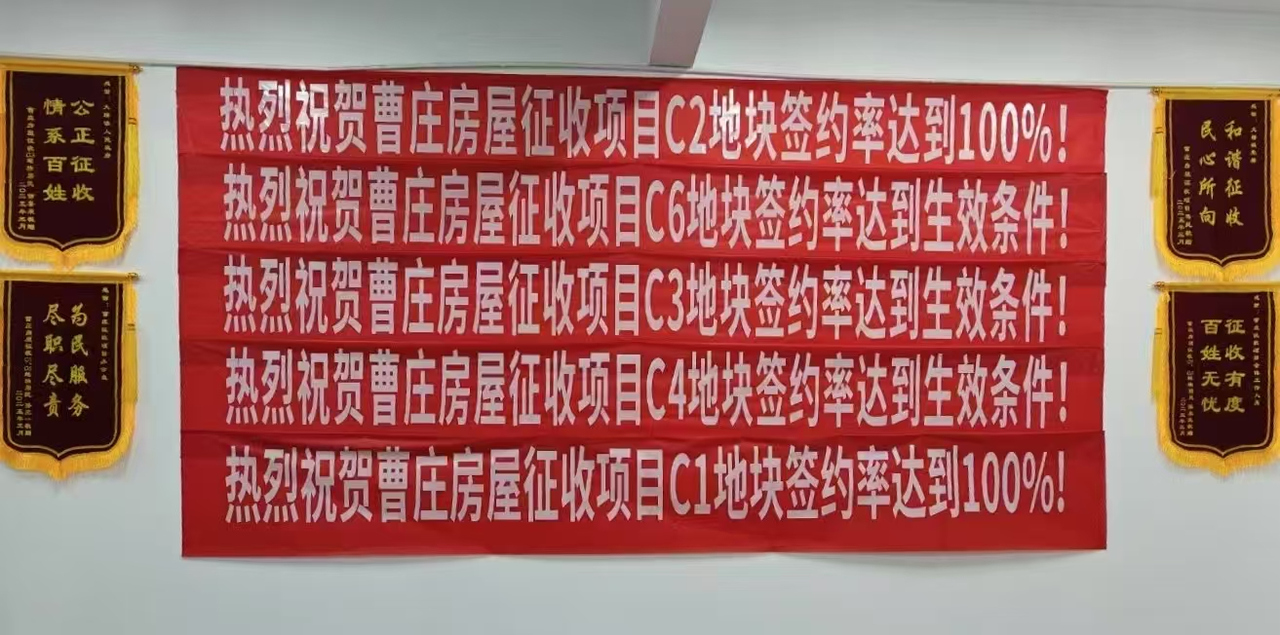 热烈祝贺曹庄房屋征收项目C2地块签约率达到100%!
热烈祝贺曹庄房屋征收项目C6地块签约率达到生效条件!
热烈祝贺曹庄房屋征收项目C3地块签约率达到生效条件!
热烈祝贺曹庄房屋征收项目C4地块签约率达到生效条件!
热烈祝贺曹庄房屋征收项目C1地块签约率达到100%!
公正征收
情系百姓
为民服务
尽职尽责
和谐征收
民心所向
征收有度
百姓无忧